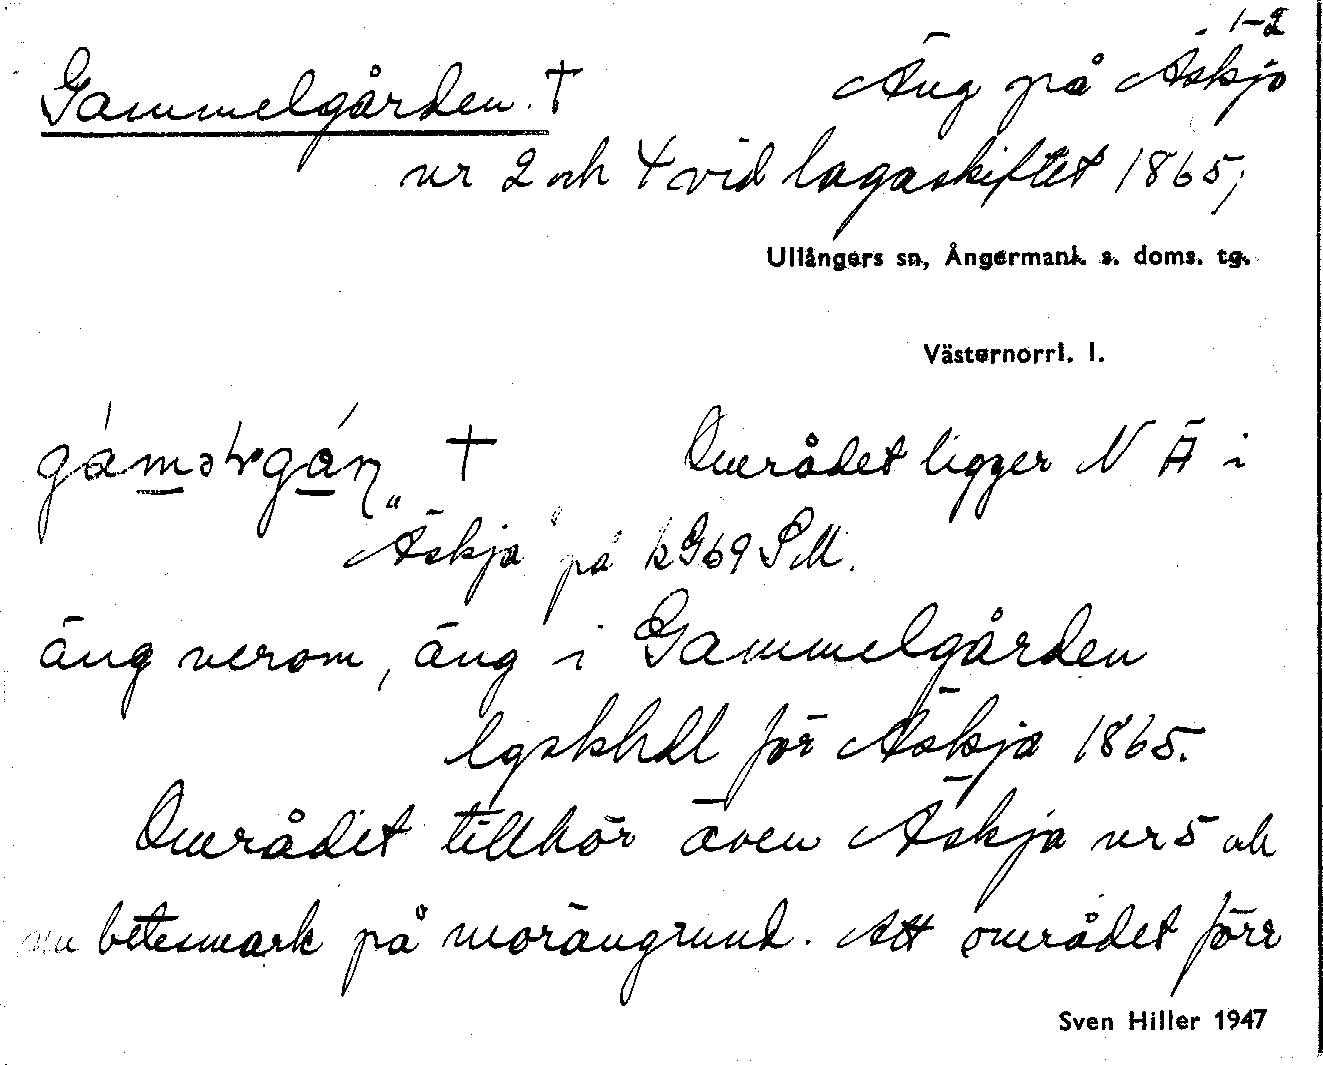 1-2
Gammelgården. † Äng på Äskja
nr 2 och 4 vid lagaskiftet 1865;
Ullångers sn, Ångermanl. s. doms. tg.
Västernorrl. l.
† Området ligger N Ä i
"Äskja" på k G69 SM.
äng verom, äng i Gammelgården
lgskhdl för Äskja 1865.
Området tillhör även Äskja nr 5 och
nu betesmark på morängrund. Att området förr
Sven Hiller 1947